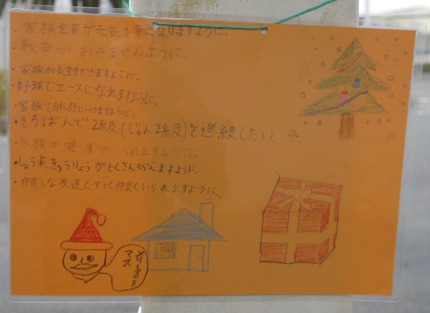 ・家族全員が元気で幸になりますように。
・戦争がおきませんように。
・家族が長生きできますように。
・野球でエースになれますように。
・家族で旅行にいけますように。
・そろばんで2級(じゅん2級)を進級したい
・家族が
られますように。
・しょう来きゅうりょうがたくさん
ますように。
・仲良しな友達とずっと仲良くいられますように。
メリークリスマス